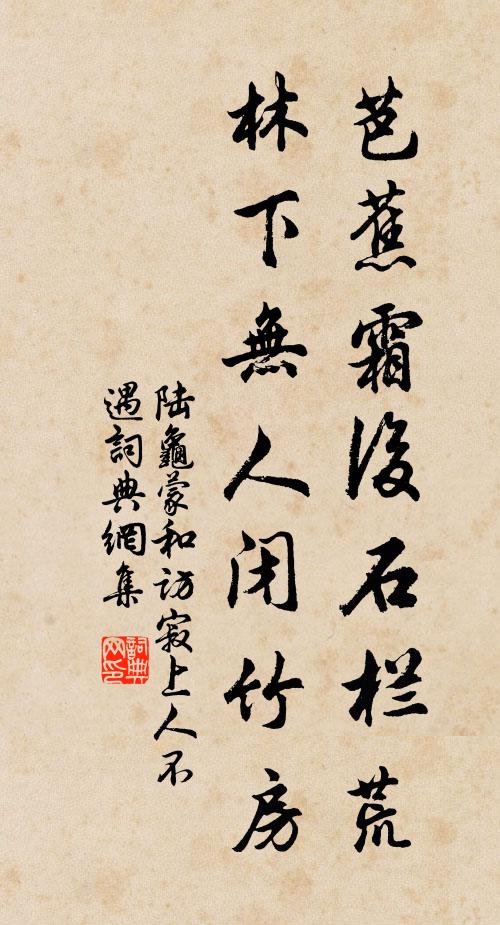 芭蕉霜後石栏荒
林下無人闭竹房
陆龜蒙和訪寂上人不
遇詞典網集
詞典网印